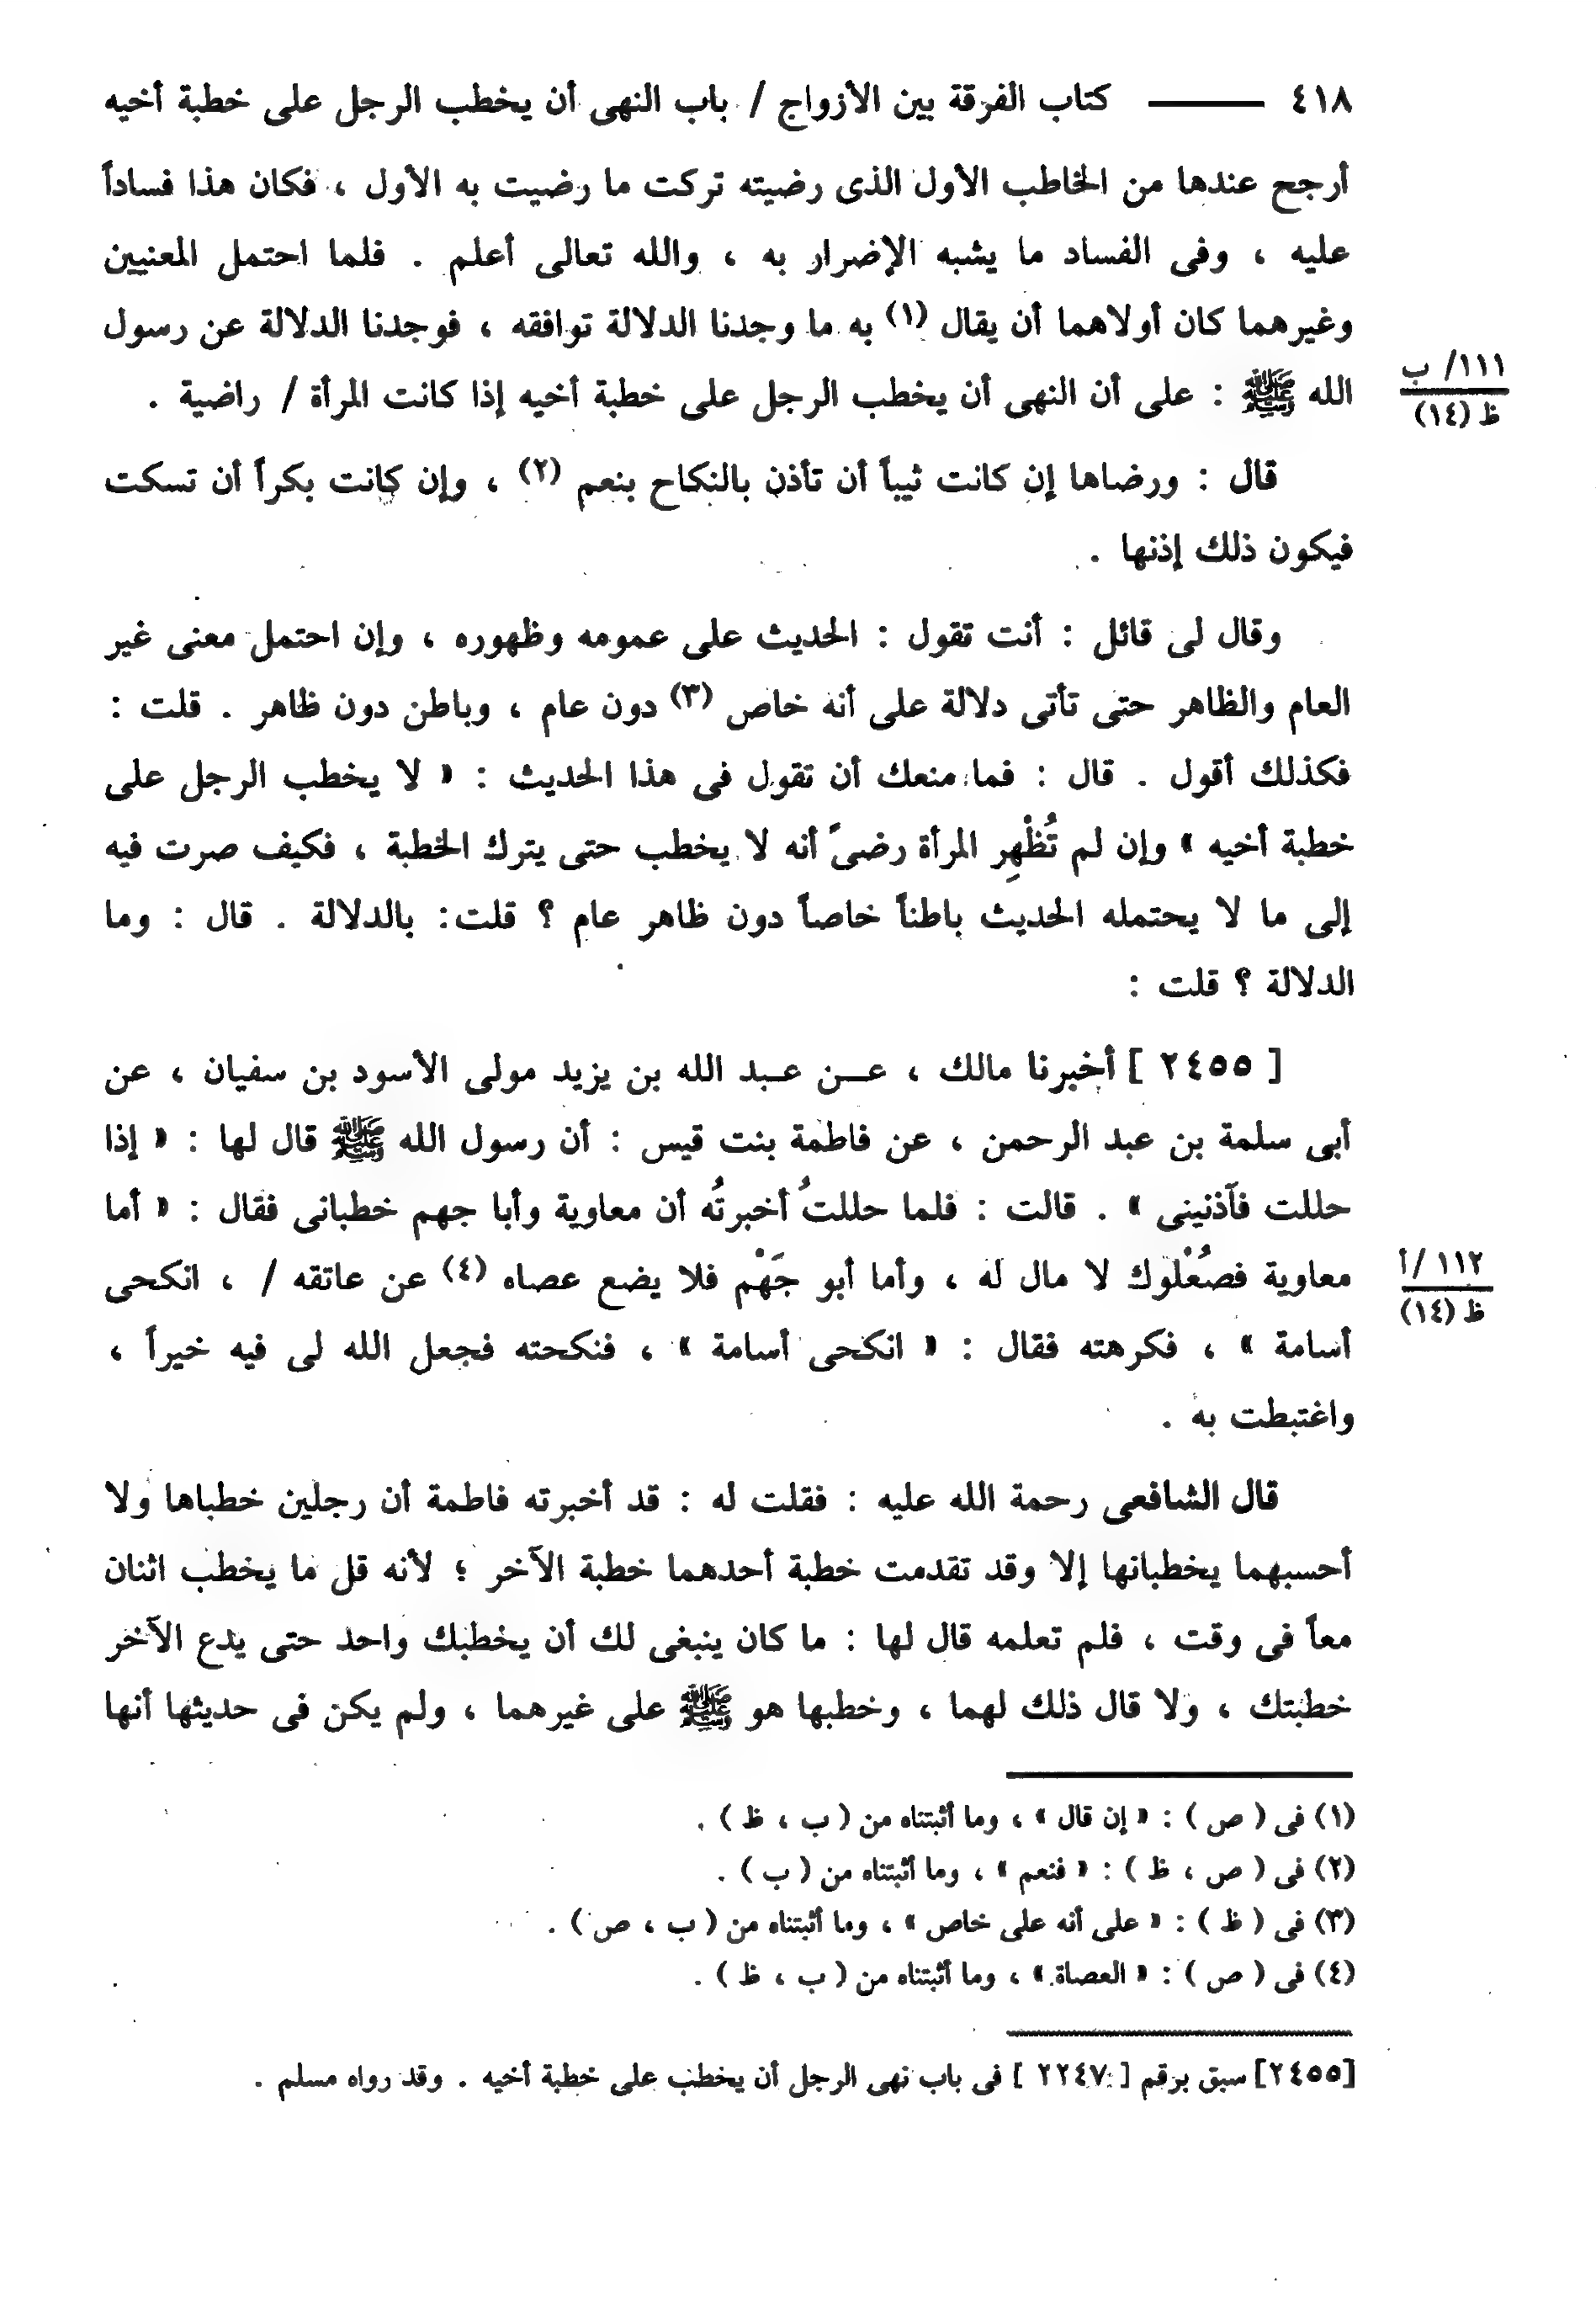 ٤١٨ ــــــ كتاب الفرقة بين الأزواج / باب النهى أن يخطب الرجل على خطبة أخيه
أرجح عندها من الخاطب الأول الذى رضيته تركت ما رضيت به الأول ، فكان هذا فساداً
عليه ، وفى الفساد ما يشبه الإضرار به ، والله تعالى أعلم . فلما احتمل المعنيين
وغيرهما كان أولاهما أن يقال (١) به ما وجدنا الدلالة توافقه ، فوجدنا الدلالة عن رسول
١١١/ ب
ظ (١٤)
الله ﷺ : على أن النهى أن يخطب الرجل على خطبة أخيه إذا كانت المرأة / راضية .
قال : ورضاها إن كانت ثيباً أن تأذن بالنكاح بنعم (٢) ، وإن كانت بكراً أن تسكت
فيكون ذلك إذنها .
وقال لى قائل : أنت تقول : الحديث على عمومه وظهوره ، وإن احتمل معنى غير
العام والظاهر حتى تأتى دلالة على أنه خاص (٣) دون عام ، وباطن دون ظاهر . قلت :
فكذلك أقول . قال : فما منعك أن تقول فى هذا الحديث : « لا يخطب الرجل على
خطبة أخيه » وإن لم تُظْهِر المرأة رضىً أنه لا يخطب حتى يترك الخطبة ، فكيف صرت فيه
إلى ما لا يحتمله الحديث باطناً خاصاً دون ظاهر عام ؟ قلت: بالدلالة . قال : وما
الدلالة ؟ قلت :
[ ٢٤٥٥ ] أخبرنا مالك ، عـــن عـبد الله بن يزيد مولى الأسود بن سفيان ، عن
أبى سلمة بن عبد الرحمن ، عن فاطمة بنت قيس : أن رسول الله ﷺ قال لها : « إذا
حللت فآذنينى » . قالت : فلما حللتُ أخبرتُه أن معاوية وأبا جهم خطبانى فقال : « أما
معاوية فصُعْلوك لا مال له ، وأما أبو جَهْم فلا يضع عصاه (٤) عن عاتقه / ، انكحى
١١٢ /أ
ظ (١٤)
أسامة » ، فكرهته فقال : « انكحى أسامة » ، فنكحته فجعل الله لى فيه خيراً ،
واغتبطت به .
قال الشافعى رحمة الله عليه : فقلت له : قد أخبرته فاطمة أن رجلين خطباها ولا
أحسبهما يخطبانها إلا وقد تقدمت خطبة أحدهما خطبة الآخر ؛ لأنه قل ما يخطب اثنان
معاً فى وقت ، فلم تعلمه قال لها : ما كان ينبغى لك أن يخطبك واحد حتى يدع الآخر
خطبتك ، ولا قال ذلك لهما ، وخطبها هو ﷺ على غيرهما ، ولم يكن فى حديثها أنها
(١) فى ( ص ) : « إن قال » ، وما أثبتناه من ( ب ، ظ ) .
(٢) فى ( ص ، ظ ) : « فنعم » ، وما أثبتناه من ( ب ) .
(٣) فى ( ظ ) : « على أنه على خاص » ، وما أثبتناه من ( ب ، ص ) .
(٤) فى ( ص ) : « العصاة » ، وما أثبتناه من ( ب ، ظ ) .
[٢٤٥٥] سبق برقم [ ٢٢٤٧ ] فى باب نهى الرجل أن يخطب على خطبة أخيه . وقد رواه مسلم .